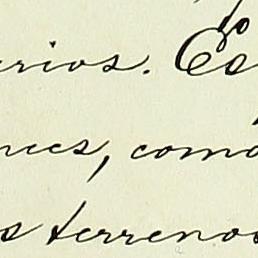 rios. Es
nces, como
s terrenos